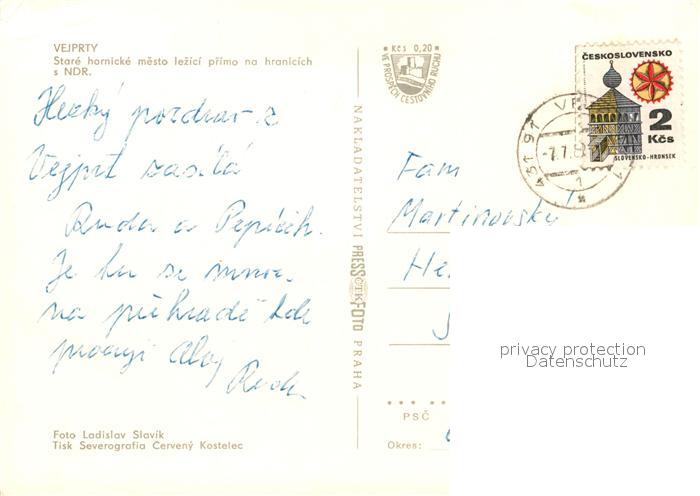 VEJPRTY
Staré hornické město ležící přímo na hranicích
s NDR.
Hezký pozdrav z
Vejprt zasílá
Ruda a Pepíček.
Je tu se mnou
na přehradě kde
Ruda
Foto Ladislav Slavík
Tisk Severografia Červený Kostelec
NAKLADATELSTVÍ PRESSFOTO PRAHA
ČTK
Kčs 0,20
VE PROSPĚCH CESTOVNÍHO RUCHU
ČESKOSLOVENSKO
2
Kčs
SLOVENSKO-HRONSEK
431 91 VE
-7.7.8
1
Fam
Martinovský
He
privacy protection
Datenschutz
PSČ
Okres: